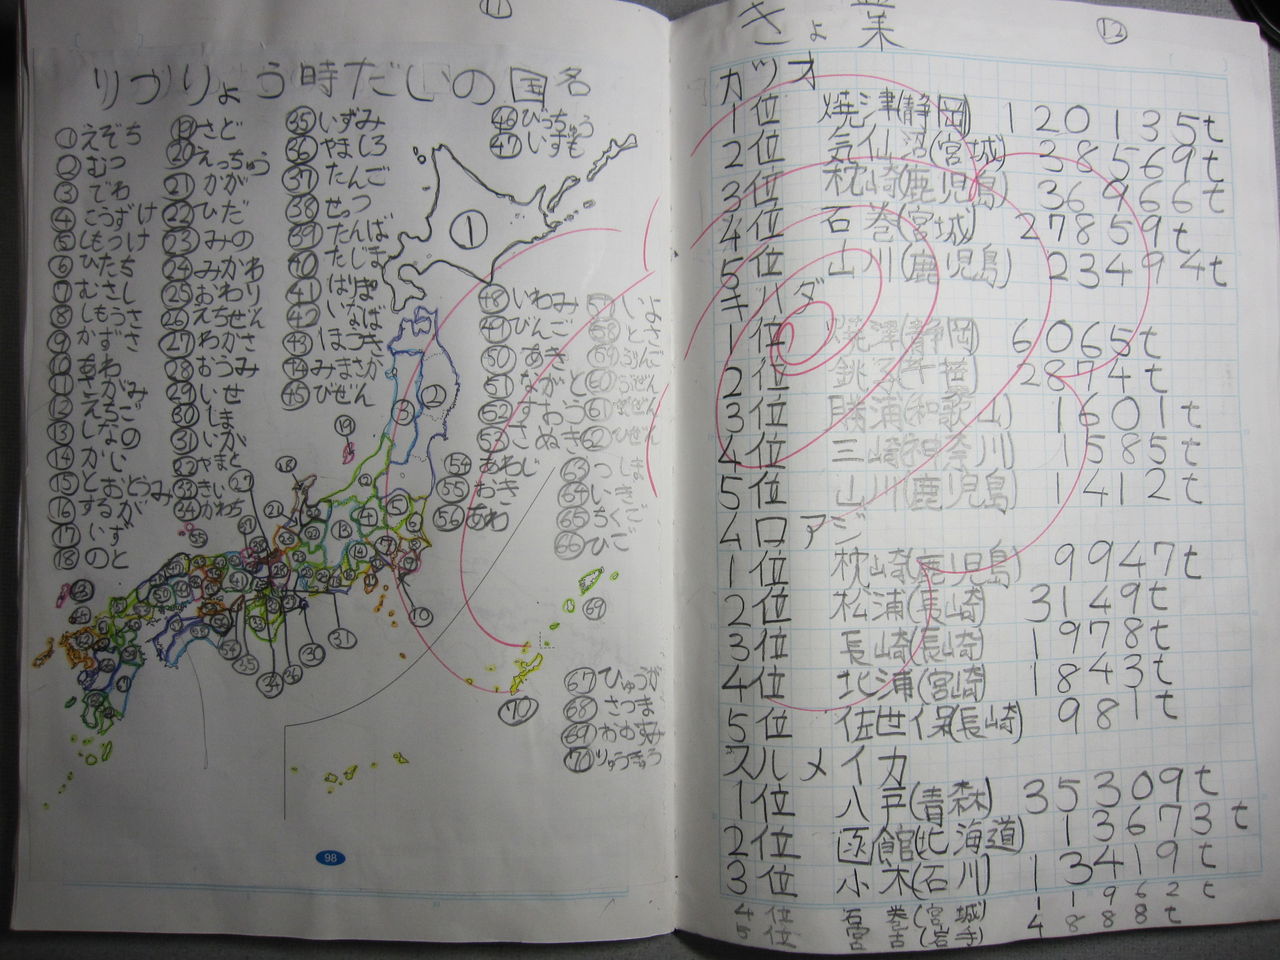 ⑪
りつりょう時だいの国名
①えぞち
②むつ
③でわ
④こうずけ
⑤しもつけ
⑥ひたち
⑦むさし
⑧しもうさ
⑨かずさ
⑩あわ
⑪さがみ
⑫えちご
⑬しなの
⑭かい
⑮とおとうみ
⑯するが
⑰いず
⑱のと
⑲さど
⑳えっちゅう
㉑かが
㉒ひだ
㉓みの
㉔みかわ
㉕おわり
㉖えちぜん
㉗わかさ
㉘おうみ
㉙いせ
㉚しま
㉛いが
㉜やまと
㉝きい
㉞かわち
㉟いずみ
㊱やましろ
㊲たんご
㊳せっつ
㊴たんば
㊵たじま
㊶はりま
㊷いなば
㊸ほうき
㊹みまさか
㊺びぜん
㊻びっちゅう
㊼いずも
㊽いわみ
㊾びんご
㊿あき
51ながと
52すおう
53さぬき
54あわじ
55おき
56あわ
57いよ
58とさ
59ぶんご
60ぶぜん
61ちくぜん
62ひぜん
63つしま
64いき
65ちくご
66ひご
67ひゅうが
68さつま
69おおすみ
70りゅうきゅう
98
きょ業
⑫
カツオ
1位 焼津(静岡) 120135t
2位 気仙沼(宮城) 38569t
3位 枕崎(鹿児島) 36966t
4位 石巻(宮城) 27859t
5位 山川(鹿児島) 23494t
キハダ
1位 焼津(静岡) 6065t
2位 銚子(千葉) 2874t
3位 勝浦(和歌山) 1601t
4位 三崎(神奈川) 1585t
5位 山川(鹿児島) 1412t
ムロアジ
1位 枕崎(鹿児島) 9947t
2位 松浦(長崎) 3149t
3位 長崎(長崎) 1978t
4位 北浦(宮崎) 1843t
5位 佐世保(長崎) 981t
スルメイカ
1位 八戸(青森) 35309t
2位 函館(北海道) 13673t
3位 小木(石川) 13419t
4位 石巻(宮城) 11962t
5位 宮古(岩手) 4888t